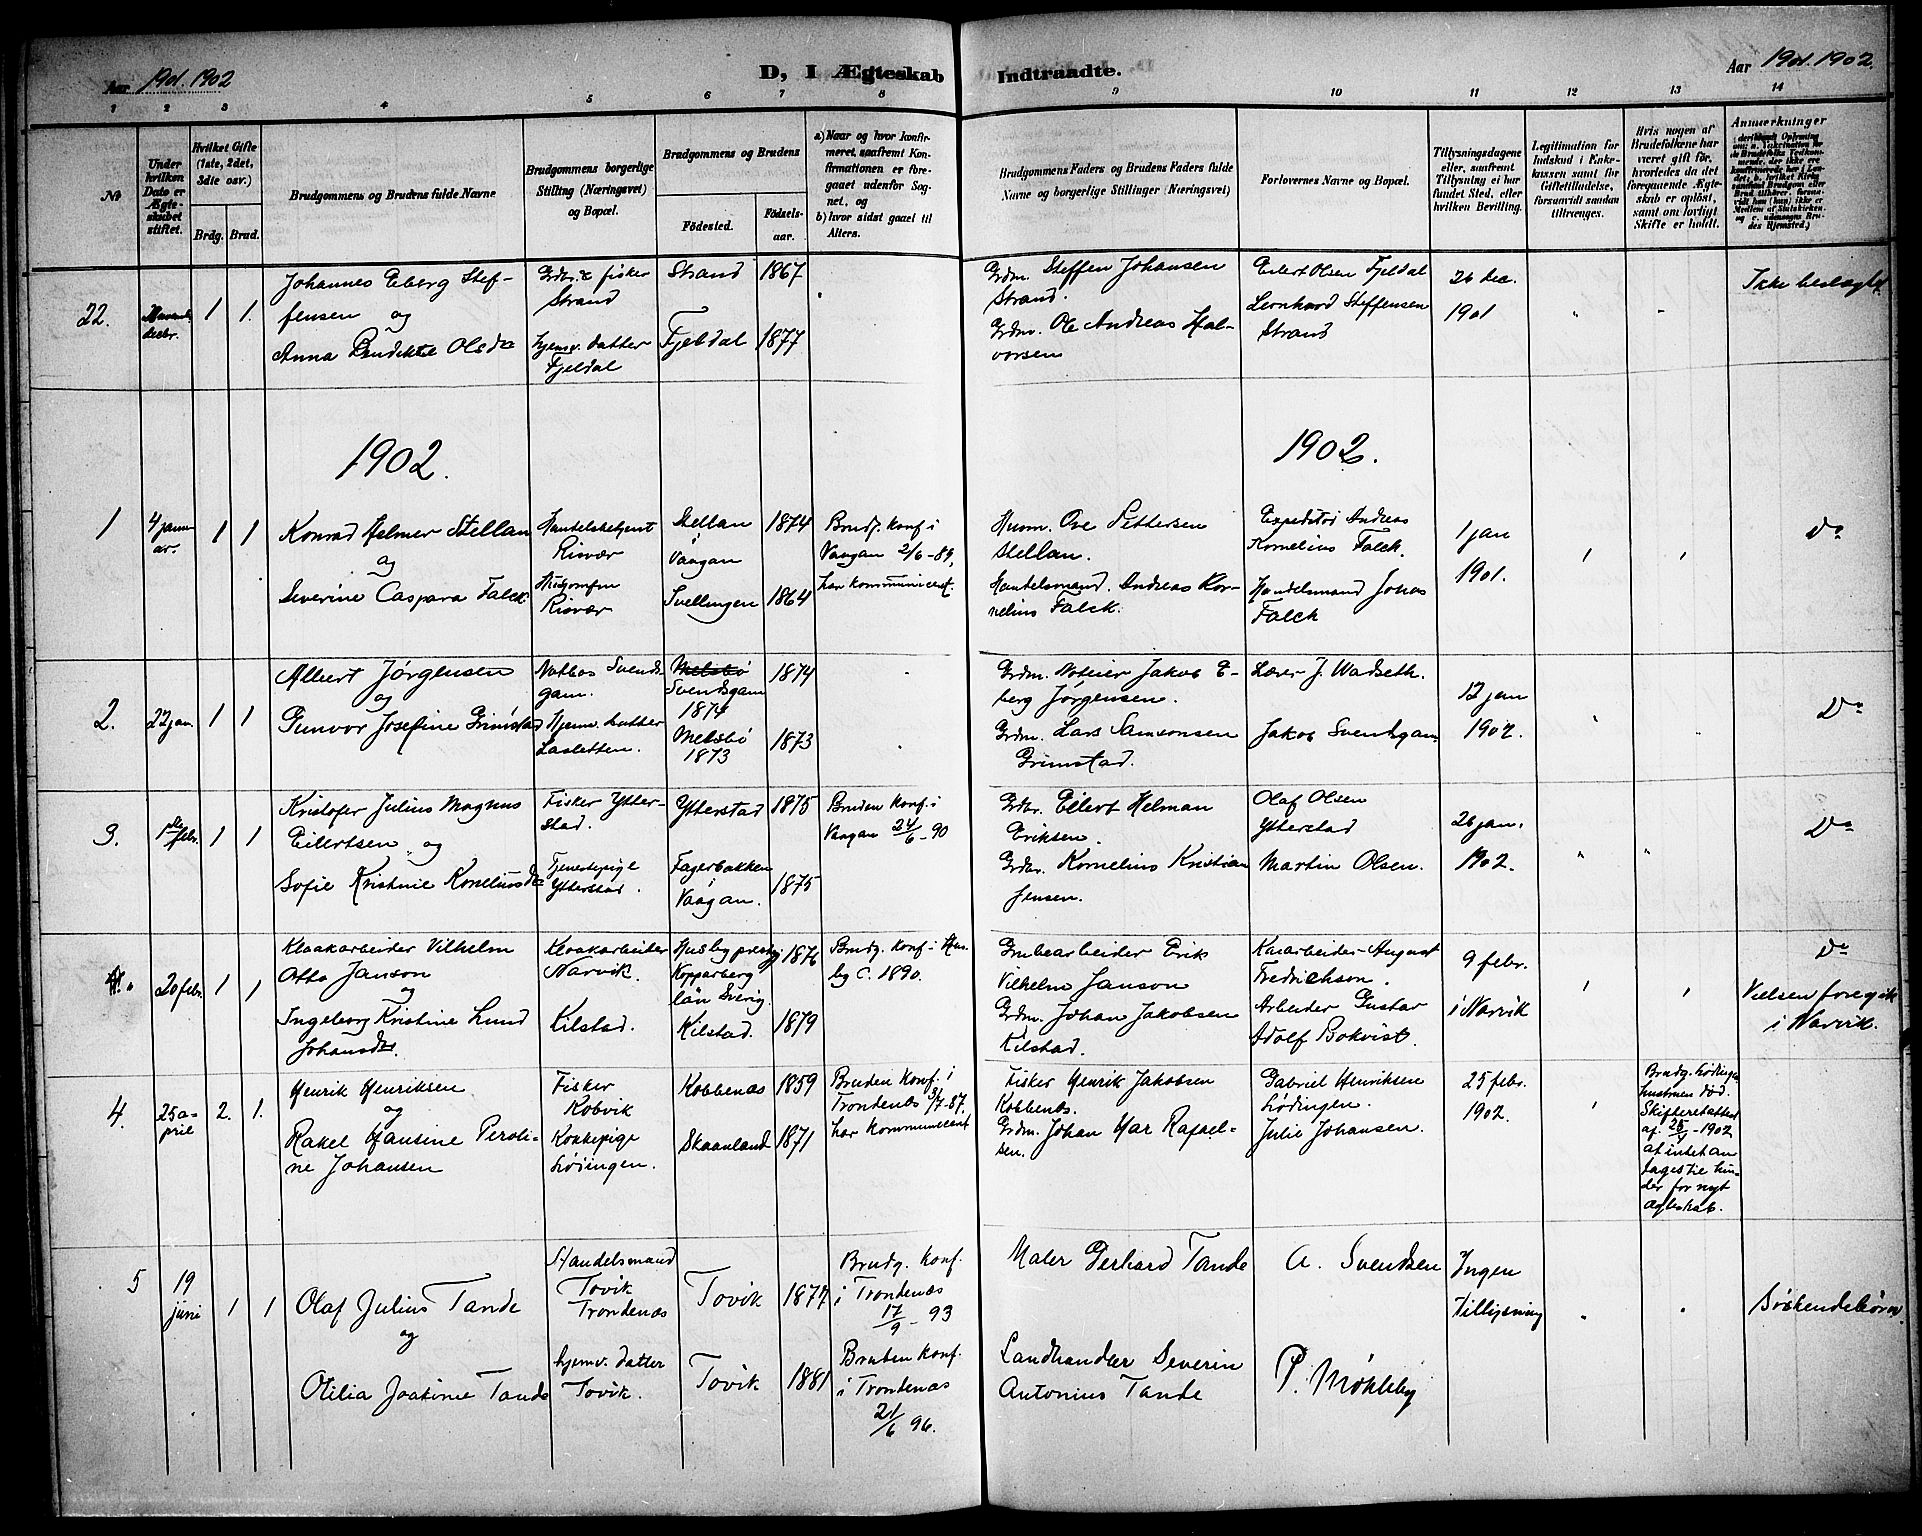 Aar 1901. 1902
D, I Ægteskab Indtraadte.
Aar 1901. 1902.
1 2 3 4 5 6 7 8 9 10 11 12 13 14
№
Under hvilken Dato er Ægteskabet stiftet.
Hvilket Gifte (1ste, 2det, 3die osv.)
Brdg. Brud.
Brudgommens og Brudens fulde Navne
Brudgommens borgerlige Stilling (Næringsvei) og Bopæl.
Brudgommens og Brudens
Födested.
Födselsaar.
a) Naar og hvor konfirmeret, saafremt Konfirmationen er foregaaet udenfor Sognet, og
b) hvor sidst gaaet til Alters.
Brudgommens Faders og Brudens Faders fulde Navne og borgerlige Stillinger (Næringsvei)
Forlovernes Navne og Bopæl.
Tillysningsdagene eller, saafremt Tillysning ei har fundet Sted, efter hvilken Bevilling.
Legitimation for Indskud i Enkekassen samt for Giftetilladelse, forsaavidt saadan tiltrænges.
Hvis nogen af Brudefolkene har været gift før, hvorledes da det foregaaende Ægteskab er opløst, samt om lovligt Skifte er holdt.
Anmærkninger
22.
desbr.
1 1.
Johannes Eberg Steffensen og
Anna Bendikte Olsdr
Grdbr. & fisker
Strand
hjemv. datter
Fjeldal
Strand 1867
Fjeldal 1877
Grdm. Steffen Johansen
Strand.
Grdm. Ole Andreas Halvorsen
Eilert Olsen Fjeldal
Leonhard Steffensen
Strand
26 dec.
1901
Ikke beslægtet.
1902.
1902.
1
4 januar.
1 1
Konrad Helmer Stellan
og
Severine Caspara Falck
Handelsbetjent
Risvær
Risvær
Stellan
i
Vaagan 1874
Svellingen 1864
Brudg. konf i
Vaagan 2/6-89,
har kommuniceret.
Husm. Ove Pettersen
Stellan.
Handelsmand. Andreas Kornelius Falck.
Expeditør Andreas
Kornelius Falck.
Handelsmand Jonas
Falck
1 jan
1901.
Do
2.
22 jan.
1 1
Albert Jørgensen
og
Gunvor Josefine Grimstad
Notbas Svendsgam.
Hjemv. datter
Lasletten.
Melsbø
Svendsgam
1874
1874
Melsbø
1873
1873
Grdm. Noteier Jakob Eberg Jørgensen.
Grdm. Lars Samsonsen
Grimstad.
Lærer J. Wadseth.
Jakob Svendsgam
12 jan
1902.
Do
3.
1ste febr.
1 1
Kristofer Julius Magnus
Eilertsen og
Sofie Kristine Korneliusdr
Fisker Ytterstad.
Tjenestepige
Ytterstad.
Ytterstad 1875
Fagerbakken
Vaagan. 1875
Bruden konf. i
Vaagan 24/6-90
Grdbr. Eilert Helman
Eriksen.
Grdbr. Kornelius Kristian
Jensen.
Olaf Olsen
Ytterstad
Martin Olsen.
26 jan.
1902.
Do
20 febr.
1 1
Kloakarbeider Vilhelm
Otto Janson
og
Ingeborg Kristine Lund
Johansdr.
Kloakarbeider
Narvik.
Kilstad.
Husby prestgj
Kopparberg
län Sverig.
1876
Kilstad. 1879
Brudg. konf. i Husby C. 1890.
Grubearbeider Erik
Vilhelm Janson
Grdm. Johan Jakobsen
Kilstad.
Kaiarbeider August
Fredrichson.
Arbeider Gustav
Adolf Bokvist.
9 febr.
i Narvik
Do
Vielsen foregik
i Narvik.
4.
25 april
2. 1.
Henrik Henriksen
og
Rakel Hansine Peroline Johansen
Fisker
Kobvik
Kokkepige
Lødingen.
Kobbenæs 1859
Skaanland 1871
Bruden konf. i
Trondenæs 3/7-87.
har kommuniceret
Fisker Henrik Jakobsen
Kobbenæs.
Grdm. Johan Har Rafaelsen.
Gabriel Henriksen
Lødingen.
Julie Johansen.
25 febr.
1902.
Brudg. Lødingen
hustruen død.
Skifteretattest
af 25/4-1902
at intet antages til hinder for nyt
ægteskab.
5
19
juni
1 1
Olaf Julius Tande
og
Otilia Joakime Tande
Handelsmand
Tovik
Trondenæs
hjemv. datter
Tovik.
Tovik 1877
Tovik 1881
Brudg. konf.
i Trondenæs
17/9-93
Bruden konf.
i Trondenæs
21/6 96.
Maler Gerhard Tande
Landhandler Severin
Antonius Tande
A. Svendsen
P. Møkleby
Ingen
Tillysning
Søskendebørn.